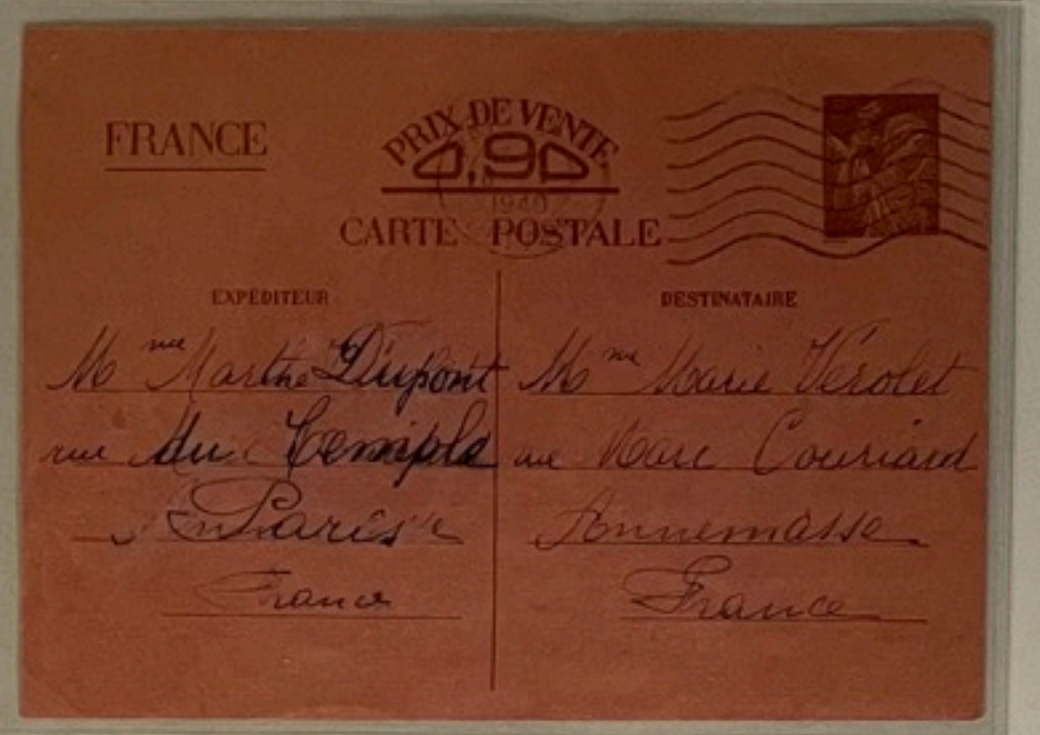 FRANCE
PRIX DE VENTE
0,90
1940
CARTE POSTALE
EXPÉDITEUR
Mme Marthe Dupont
rue du Temple
Paris
France
DESTINATAIRE
Mme Marie Verolet
rue Marc Couriard
Annemasse
France